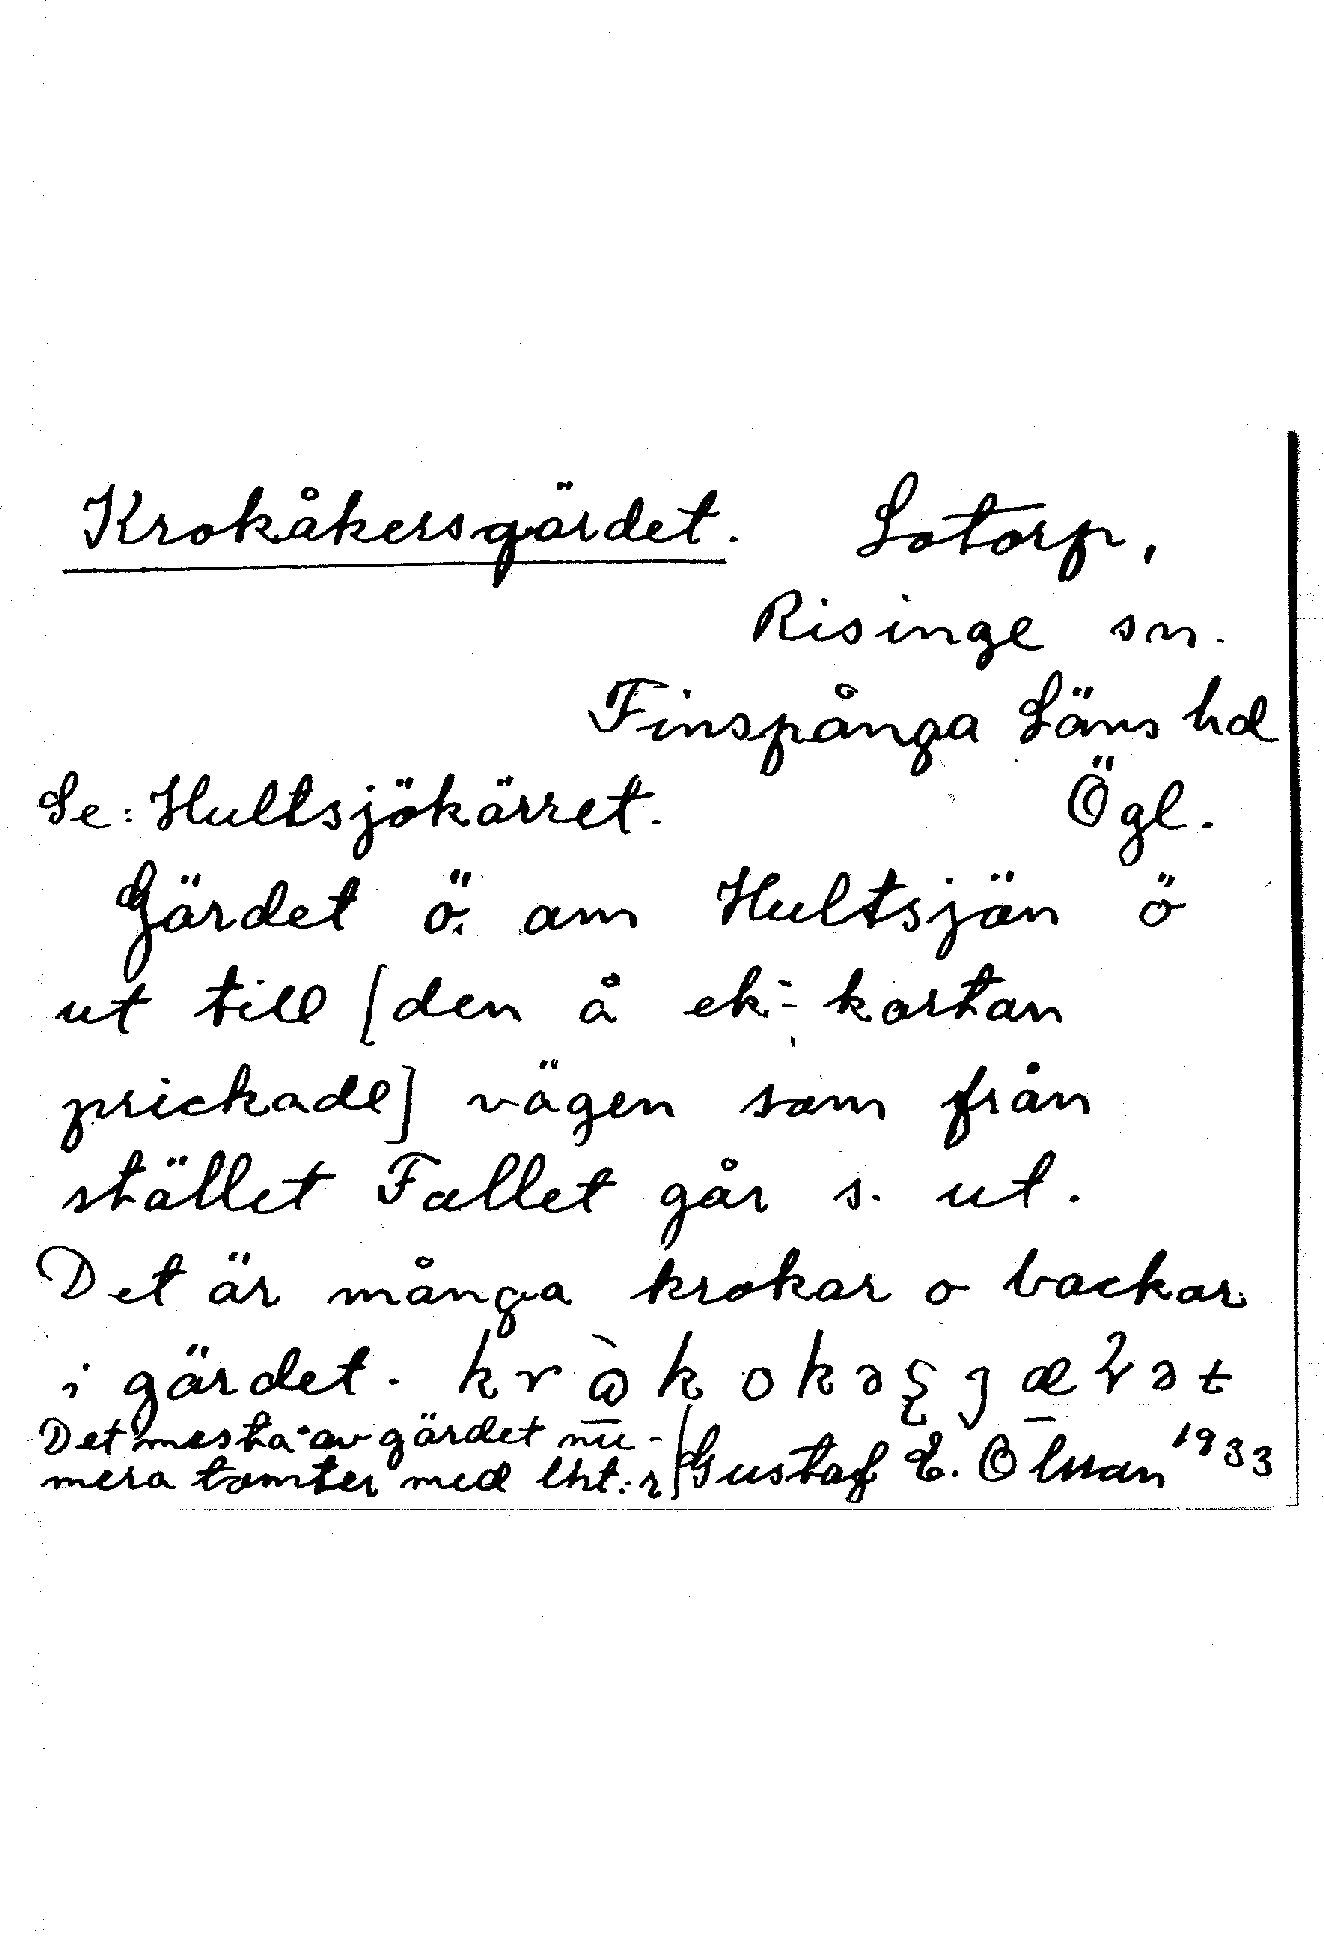 Krokåkersgärdet. Lotorp,
Risinge sn.
Finspånga Läns hd
Se: Hultsjökärret. Ögl.
Gärdet ö. om Hultsjön ö
ut till [den å ek:- kartan
prickade] vägen som från
stället Fallet går s. ut.
Det är många krokar o backar
i gärdet.
Det mesta av gärdet nu- Gustaf E. Olman 1933
mera tomter med lht:r